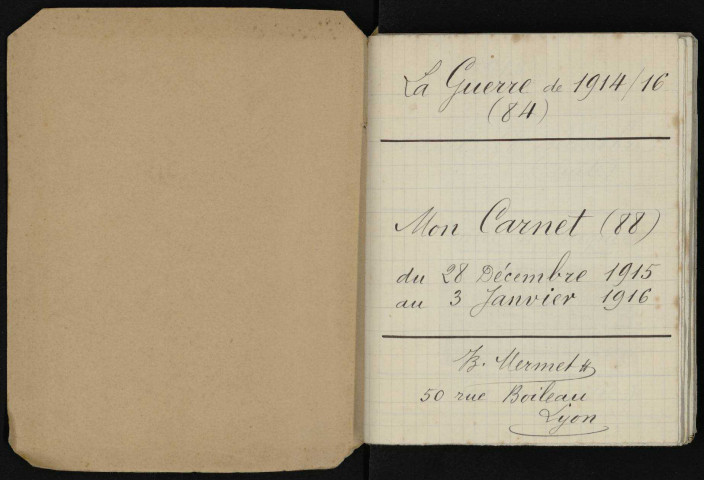 La Guerre de 1914/16
(84)
Mon Carnet (88)
du 28 Décembre 1915
au 3 Janvier 1916
B. Mermet
50 rue Boileau
Lyon